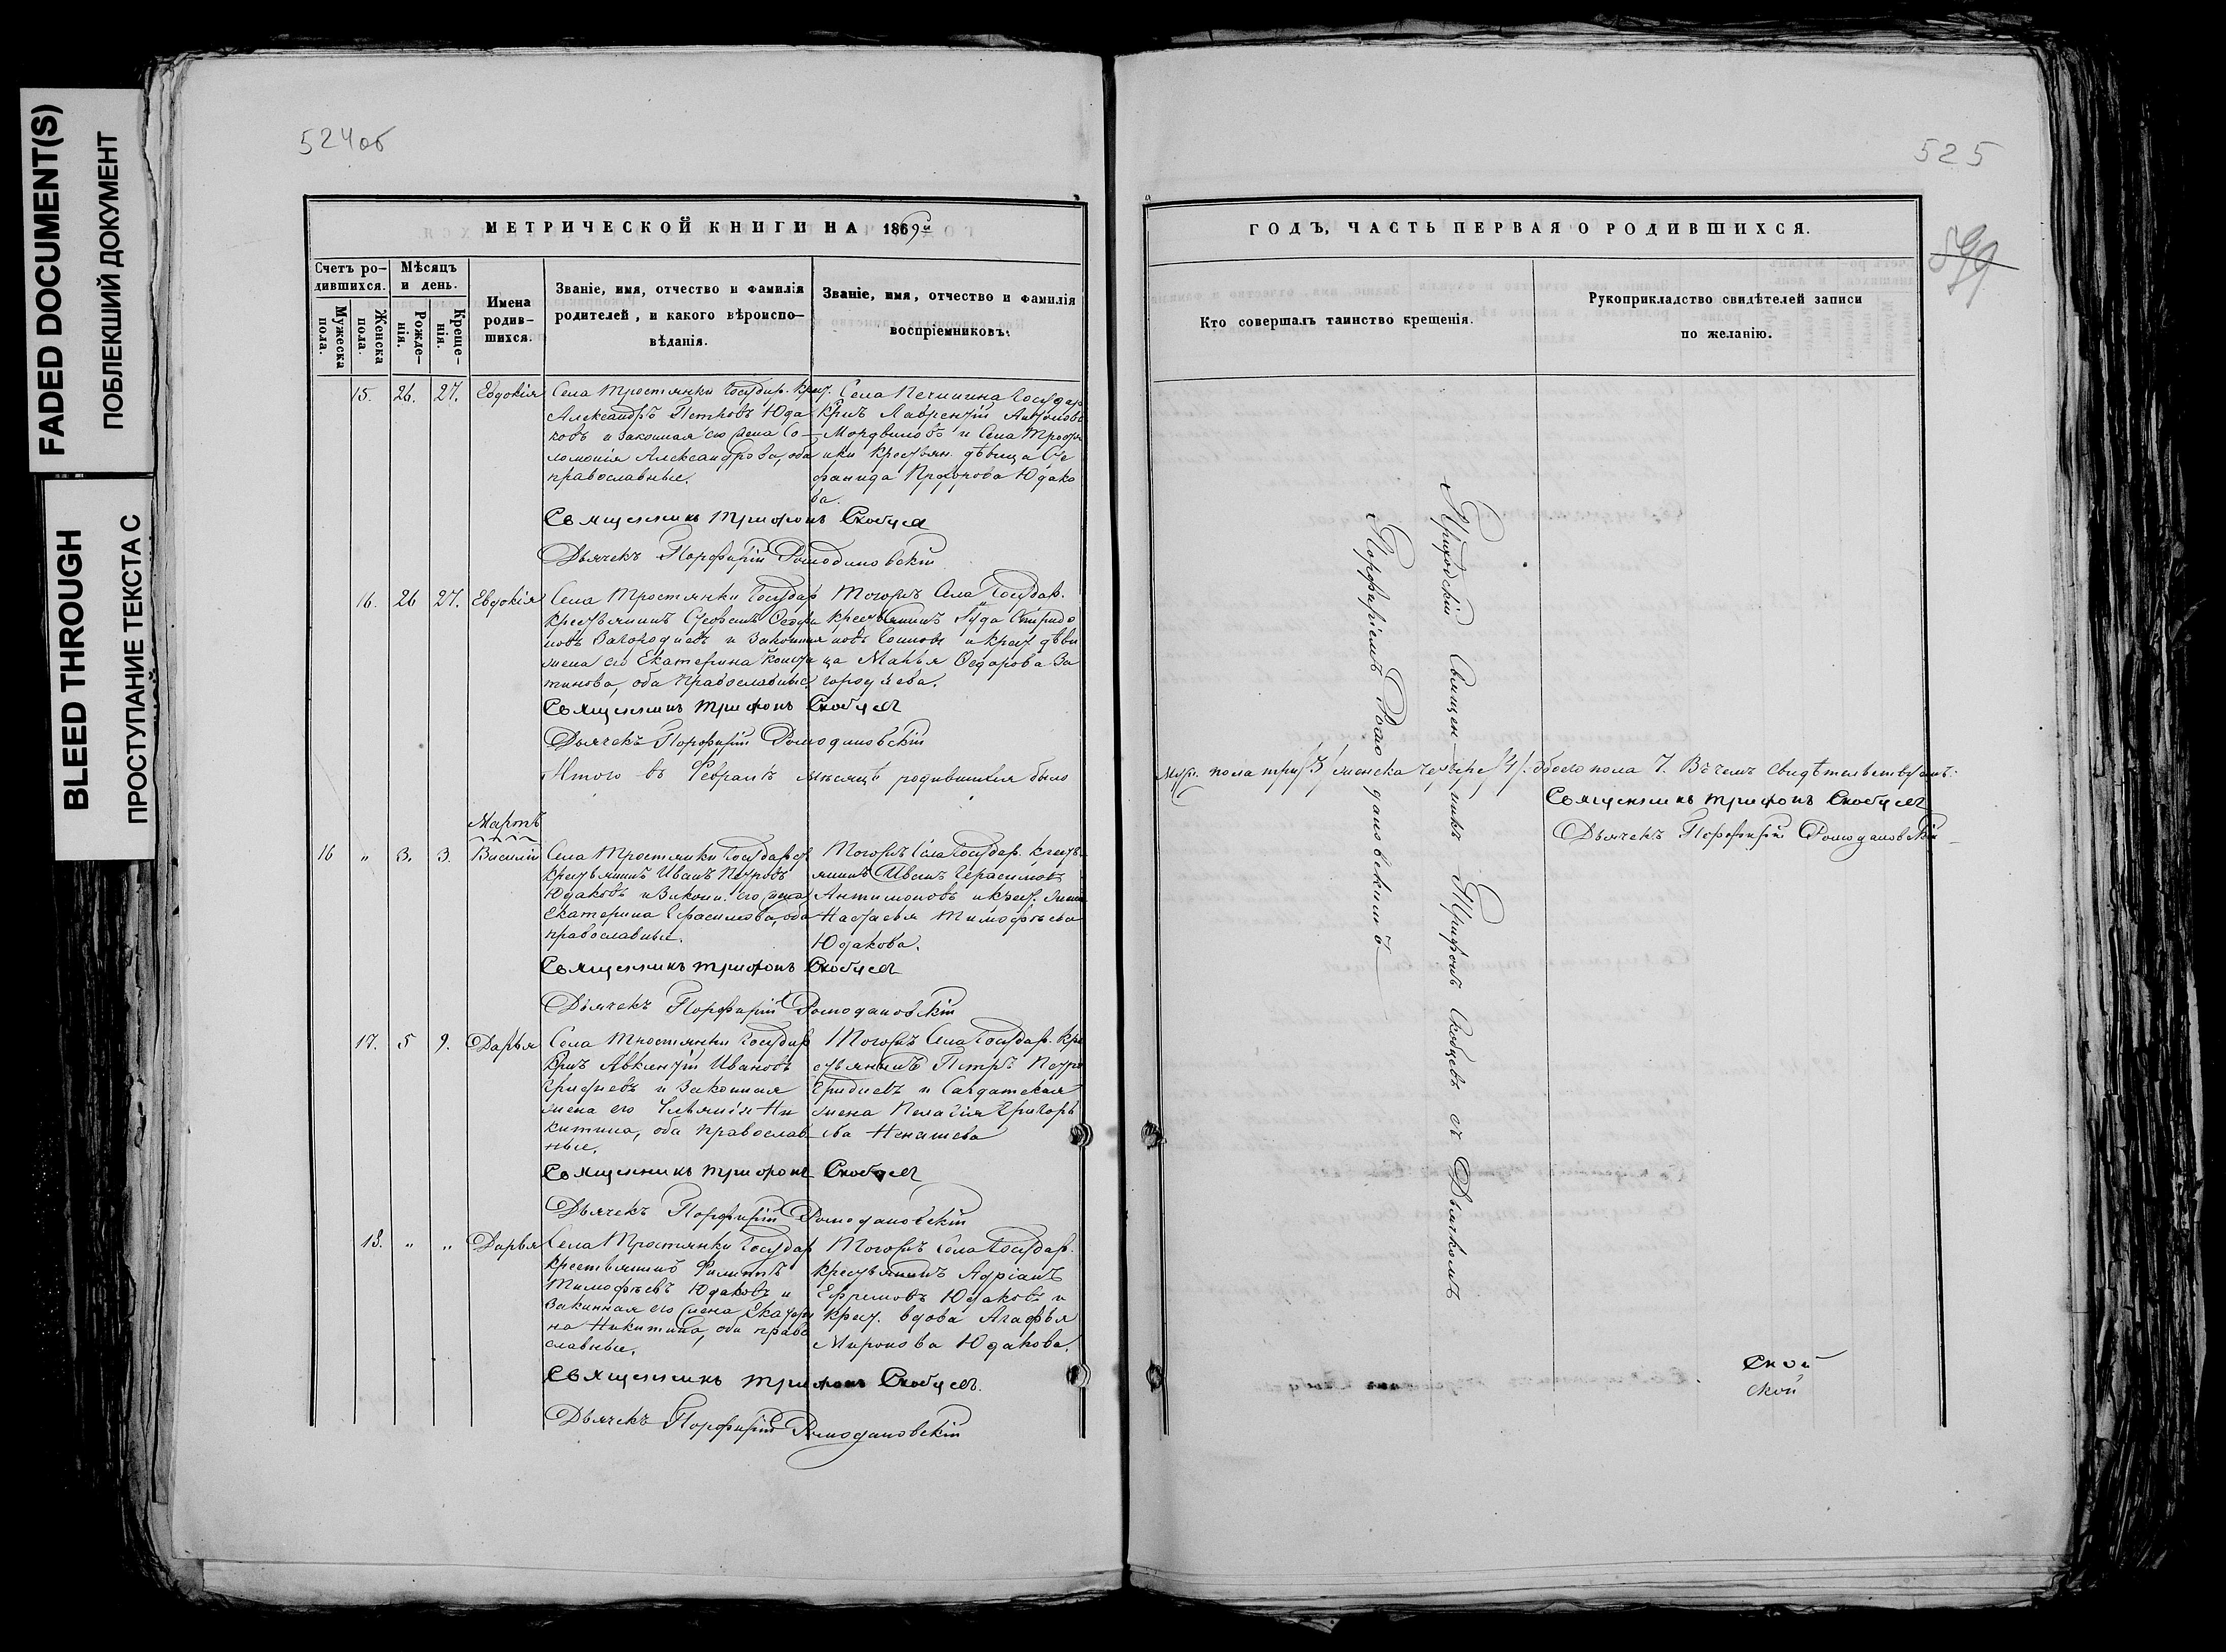 FADED DOCUMENT(S)
ПОБЛЕКШИЙ ДОКУМЕНТ
BLEED THROUGH
ПРОСТУПАНИЕ ТЕКСТА С
524об
МЕТРИЧЕСКОЙ КНИГИ НА 1869й
Счетъ ро-
дившихся.
Мѣсяцъ
и день.
Мужеска
пола.
Женска
пола.
Рожде-
нія.
Креще-
нія.
Имена
родив-
шихся.
Званіе, имя, отчество и фамилія
родителей, и какого вѣроиспо-
вѣданія.
Званіе, имя, отчество и фамилія
воспріемниковъ.
15. 26. 27. Евдокія
Села Тростянки Государ. Крест.
Александръ Петровъ Юда
ковъ и законная его жена Со-
ломонія Александрова, оба
православные.
Села Печинина Государ
Крнъ Лаврентій
Мордвиновъ и Села Тростя
нки крестьян. дѣвица Сте
фанида Прохорова Юдако
ва.
Священникъ Трифонъ Скобцевъ
Дьячекъ Порфирій Ромодановскій
16. 26 27. Евдокія
Села Тростянки Государ
крестьянинъ
новъ Загороднев и Законная
жена его Екатерина Конста
тинова, оба Православные.
Тогожъ Села Государ.
крестьянинъ Іуда Спиридо
новъ и крест дѣви
ца Марья Ѳедорова За
городнева.
Священникъ Трифонъ Скобцевъ
Дьячекъ Порфирій Ромодановскій
Итого въ Февралѣ мѣсяцѣ родившихся было
Мартъ
16 " 3. 3. Василій
Села Тростянки Государст
крестьянинъ Иванъ Петровъ
Юдаковъ и Законн. его жена
Екатерина Герасимова, оба
православные.
Тогожъ Села Государ. крест
янинъ Иванъ Герасимовъ
Антимоновъ и крест. жена
Настасья Тимофѣева
Юдакова.
Священникъ Трифонъ Скобцевъ
Дьячекъ Порфирій Ромодановскій
17. 5 9. Дарья
Села Тростянки Государ
Крнъ Авксентій Ивановъ
Гриднев и Законная
жена его Ульянія Ни
китина, оба православ
ные.
Тогожъ Села Государ. кре
стьянинъ Петръ Петро
Гридневъ и Салдатская
жена Пелагія Григорь
ева Ненашева
Священникъ Трифонъ Скобцевъ
Дьячекъ Порфирій Ромодановскій
18. " " Дарья
Села Тростянки Государ
крестьянинъ Филиппъ
Тимофѣевъ Юдаковъ и
Законная его жена Екатери
на Никитина, оба право
славные.
Тогожъ Села Государ.
крестьянинъ Адріанъ
Ефремовъ Юдаковъ и
крест. вдова Агафья
Миронова Юдакова.
Священникъ Трифонъ Скобцевъ.
Дьячекъ Порфирій Ромодановскій
525
599
ГОДЪ, ЧАСТЬ ПЕРВАЯ О РОДИВШИХСЯ.
Кто совершалъ таинство крещенія.
Рукоприкладство свидѣтелей записи
по желанію.
Приходскій Священникъ Трифонъ Скобцевъ съ Дьячкомъ
Порфиріемъ Ромодановскимъ
Муж. пола три /3/ женска четыре /4/. обоего пола 7. Въ чемъ свидѣтельствуемъ:
Священникъ Трифонъ Скобцевъ
Дьячекъ Порфирій Ромодановскій
Скоб
ской